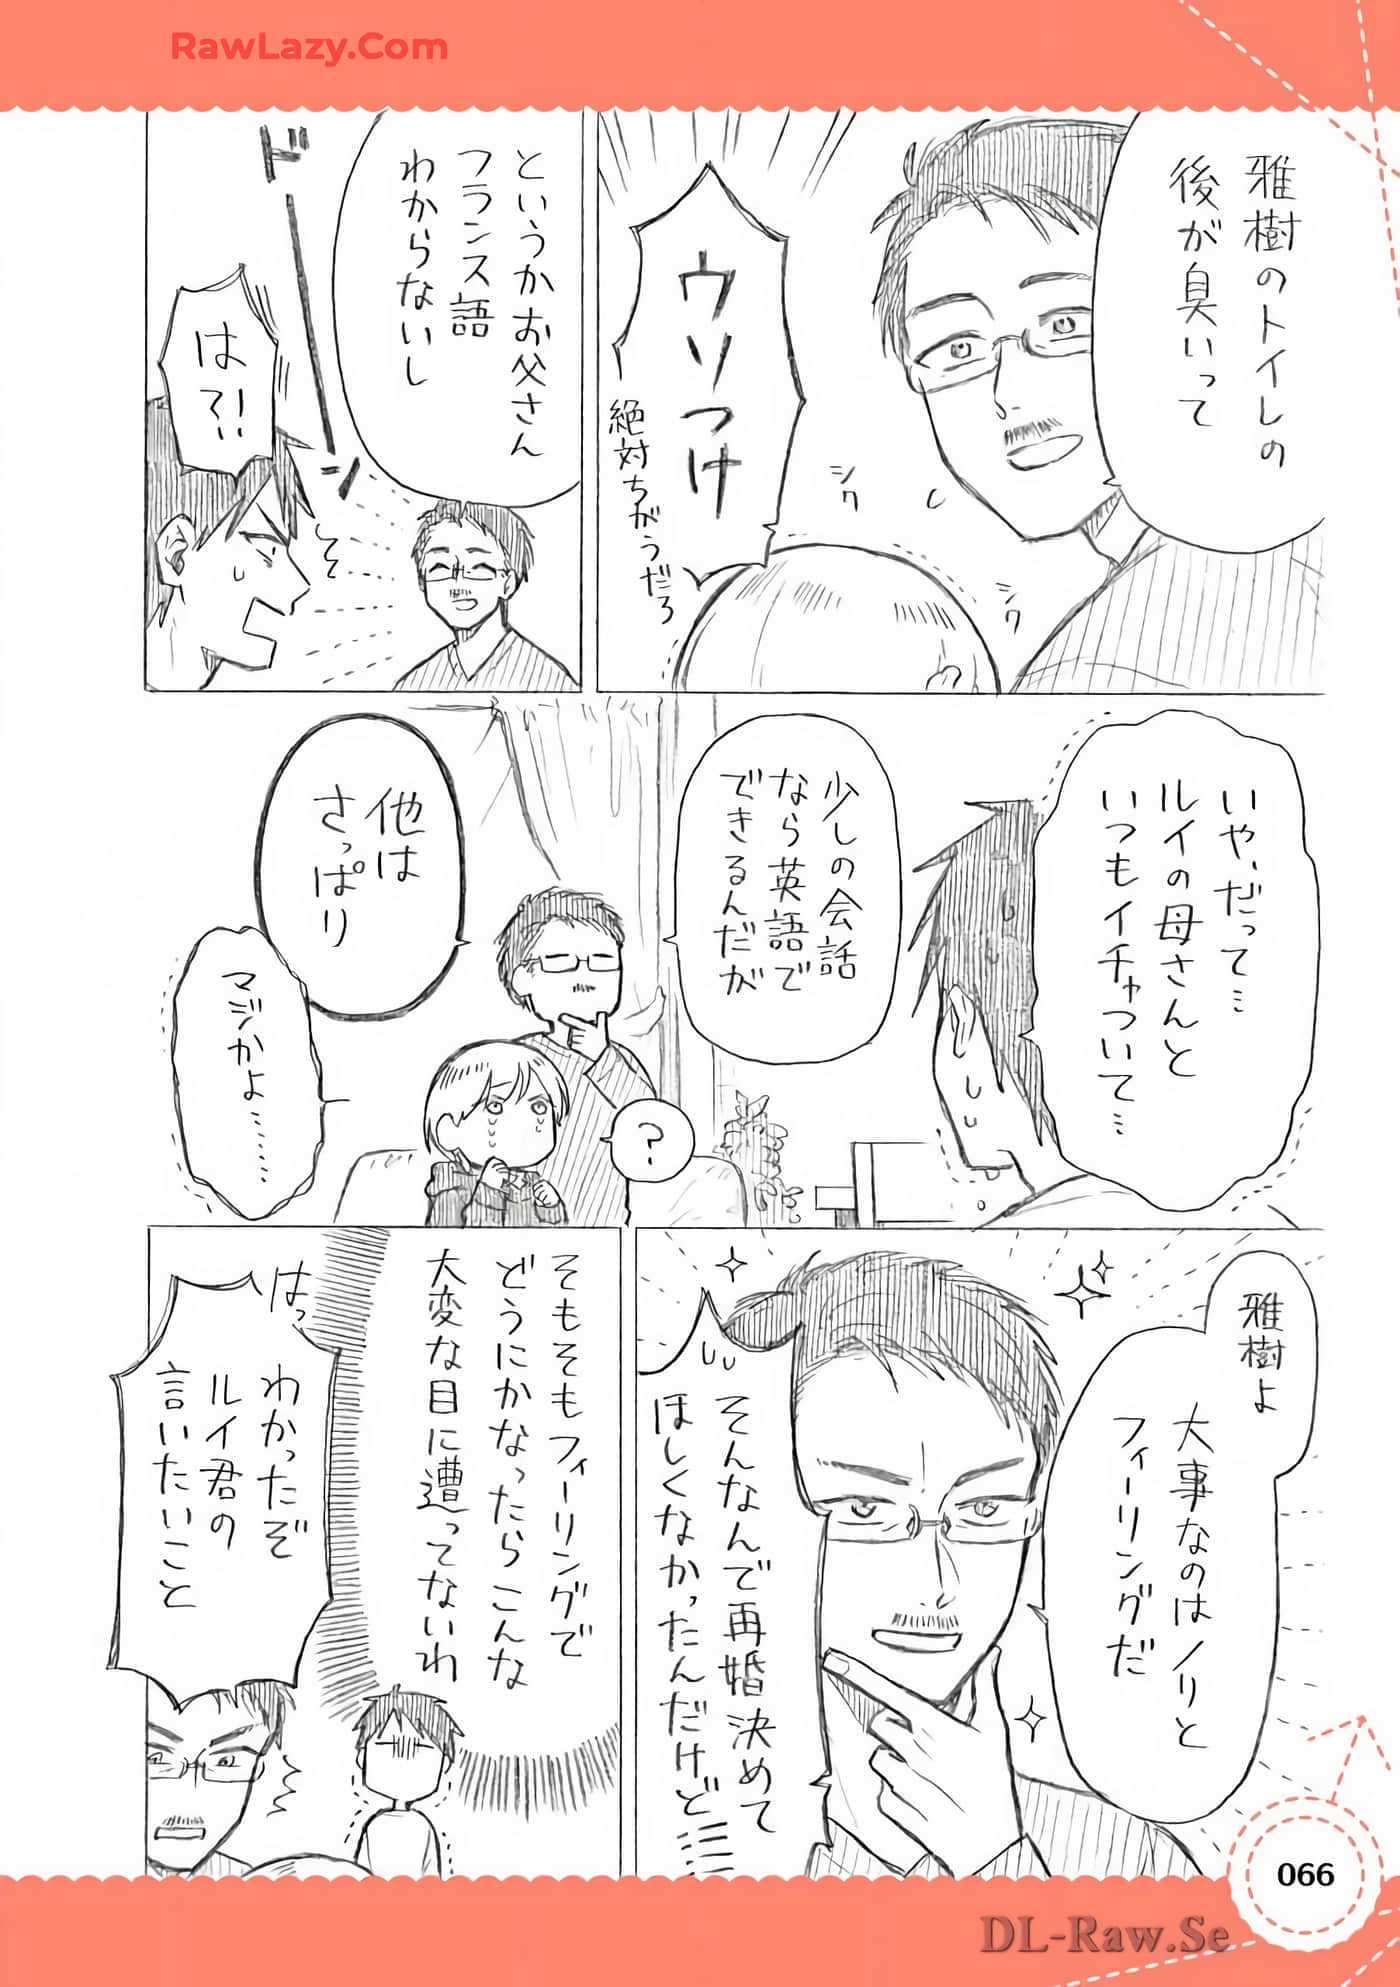 RawLazy.Com
雅樹のトイレの
後が臭いって
ウソつけ
絶対ちがうだろ
シク
シク
というかお父さん
フランス語
わからないし
ドーン
は?!
いや、だって…
ルイの母さんと
いつもイチャついて…
少しの会話
なら英語で
できるんだが
他は
さっぱり
?
マジかよ……
雅樹よ
大事なのはノリと
フィーリングだ
そんなんで再婚決めて
ほしくなかったんだけど
そもそもフィーリングで
どうにかなったらこんな
大変な目に遭ってないわ
はっ
わかったぞ
ルイ君の
言いたいこと
066
DL-Raw.Se